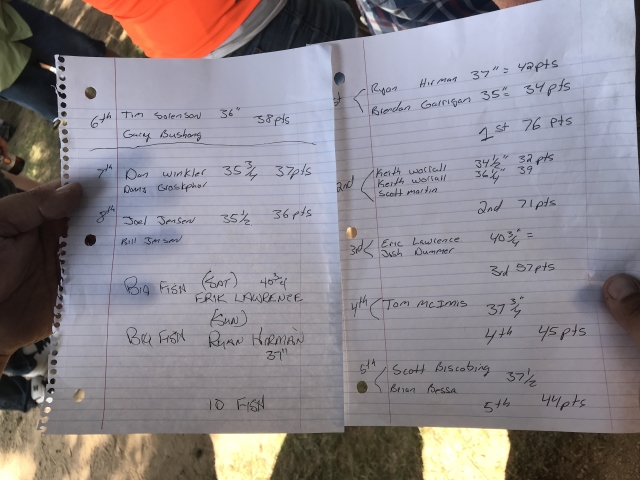 6th Tim Sorenson 36" 38pts
Gary Bushong
7th Dan Winkler 35 3/4 37pts
8th Joel Jensen 35 1/2 36pts
Bill Jensen
BIG FISH (SAT) 40 3/4
ERIK LAWRENCE
(SUN)
BIG FISH RYAN HIRMAN
37"
10 FISH
Ryan Hirman 37" = 42pts
Brendan Garrigan 35" = 34pts
1st 76 pts
2nd Keith Worrall 34 1/2" 32pts
Keith Worrall 36 1/4" 39
Scott Martin
2nd 71pts
3rd Eric Lawrence 40 3/4" =
Josh Dummer
3rd 57pts
4th Tom McInnis 37 3/4"
4th 45pts
5th Scott Biscobing 37 1/2
Brian Bessa
5th 44pts